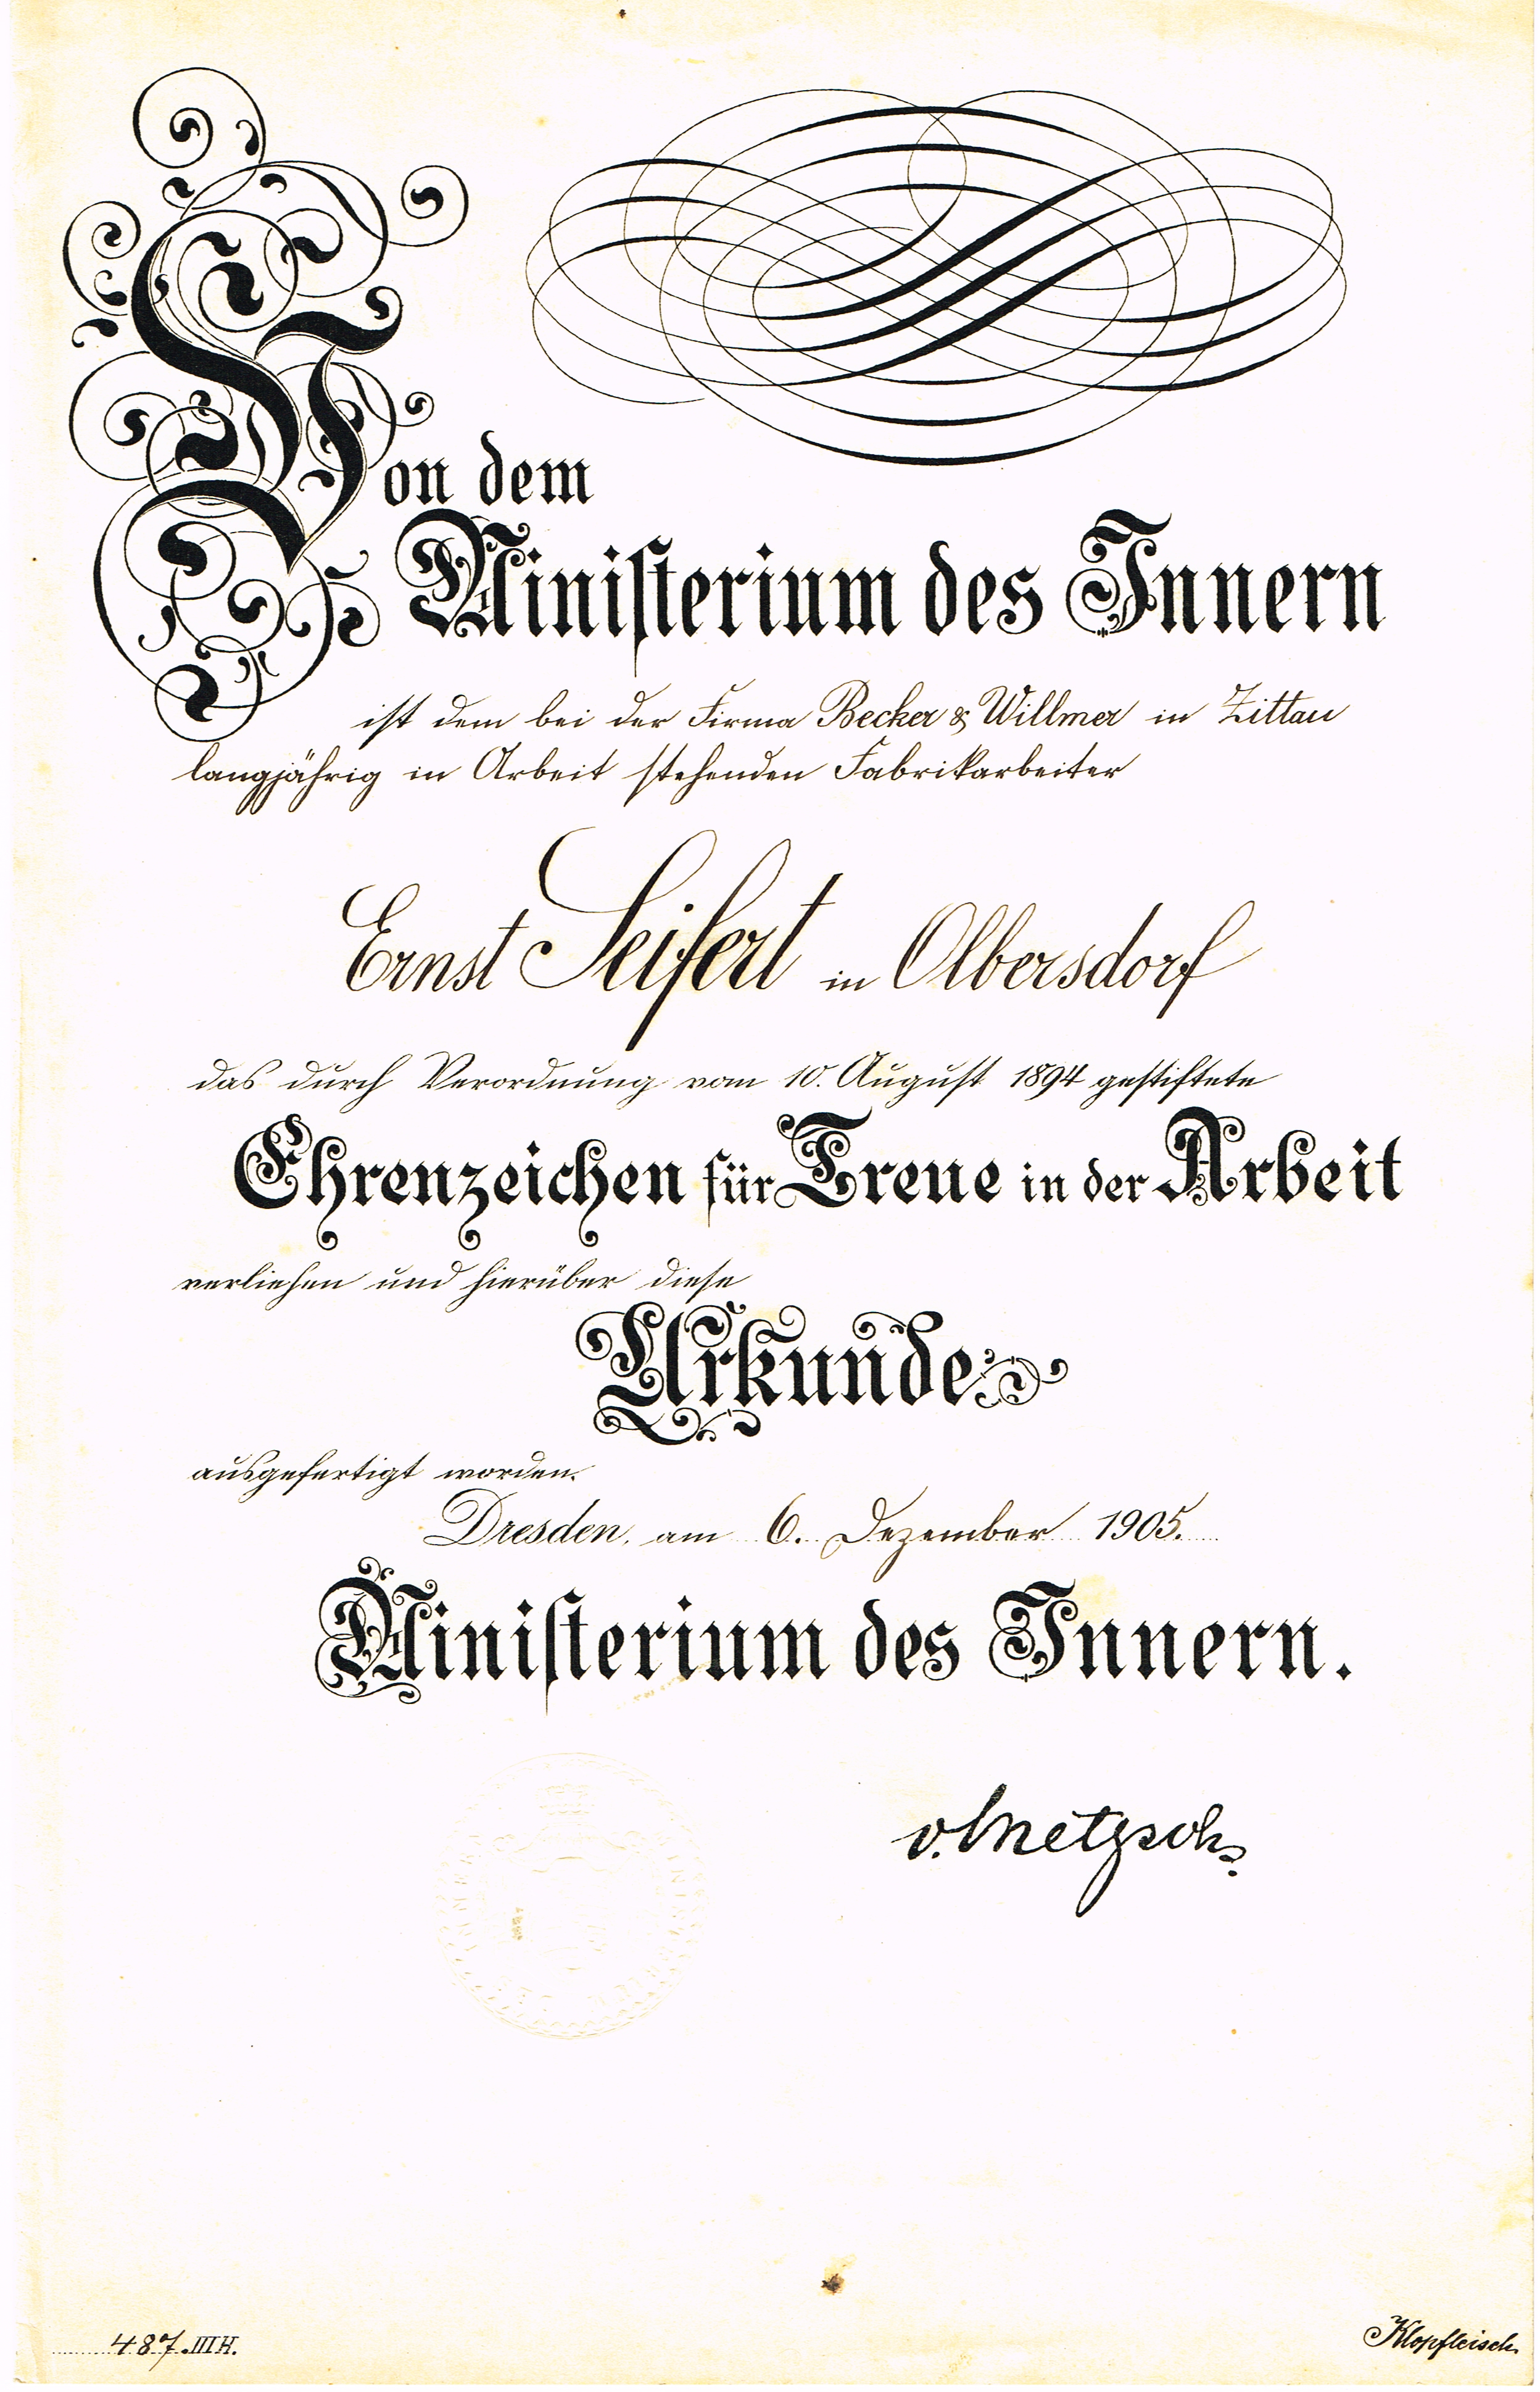 Von dem
Ministerium des Innern
ist dem bei der Firma Becker & Willmer in Zittau
langjährig in Arbeit stehenden Fabrikarbeiter
Ernst Seifert in Olbersdorf
das durch Verordnung vom 10. August 1894 gestiftete
Ehrenzeichen für Treue in der Arbeit
verliehen und hierüber diese
Urkunde
ausgefertigt worden.
Dresden, am 6. Dezember 1905.
Ministerium des Innern.
v. Metzsch.
487. III H.
Klopfleisch